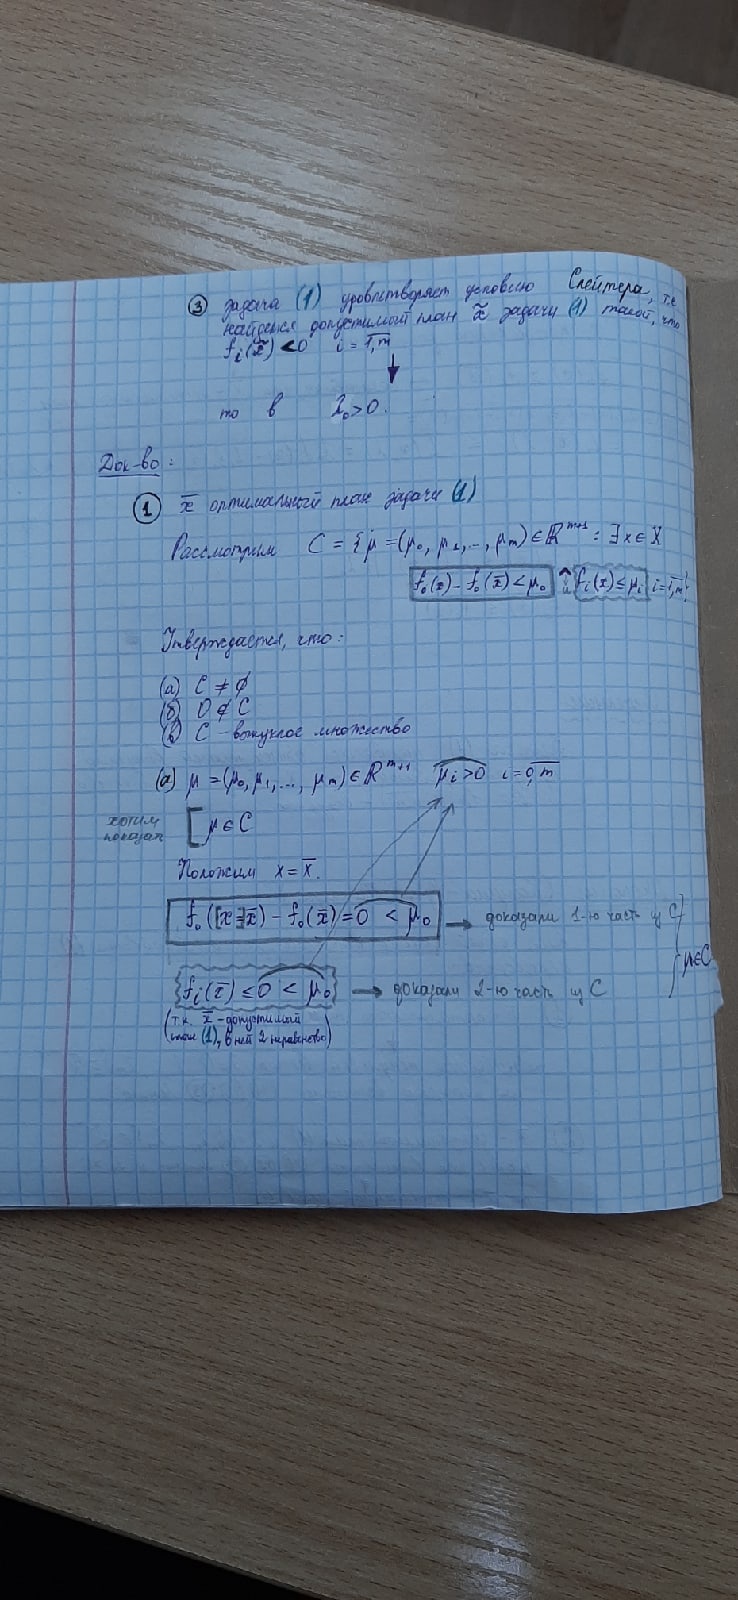 ③ Задача (1) удовлетворяет условию Слейтера, т.е
найдется допустимый план x̃ задачи (1) такой, что
fᵢ(x̃) < 0 i = 1,m
↓
то в λ₀ > 0.
Док-во:
① x̄ оптимальный план задачи (1)
Рассмотрим C = { μ = (μ₀, μ₁, ..., μₘ) ∈ ℝᵐ⁺¹ : ∃ x ∈ X
f₀(x) - f₀(x̄) < μ₀ и fᵢ(x) ≤ μᵢ i = 1,m }
Утверждается, что:
(а) C ≠ ∅
(б) 0 ∉ C
(в) C - выпуклое множество
(а) μ = (μ₀, μ₁, ..., μₘ) ∈ ℝᵐ⁺¹ μᵢ > 0 i = 0,m
хотим показать [ μ ∈ C
Положим x = x̄.
f₀([x =] x̄) - f₀(x̄) = 0 < μ₀ → доказали 1-ю часть из C
fᵢ(x̄) ≤ 0 < μ₀ → доказали 2-ю часть из C } μ ∈ C
(т.к. x̄ - допустимый
план (1), в ней 2 неравенство)